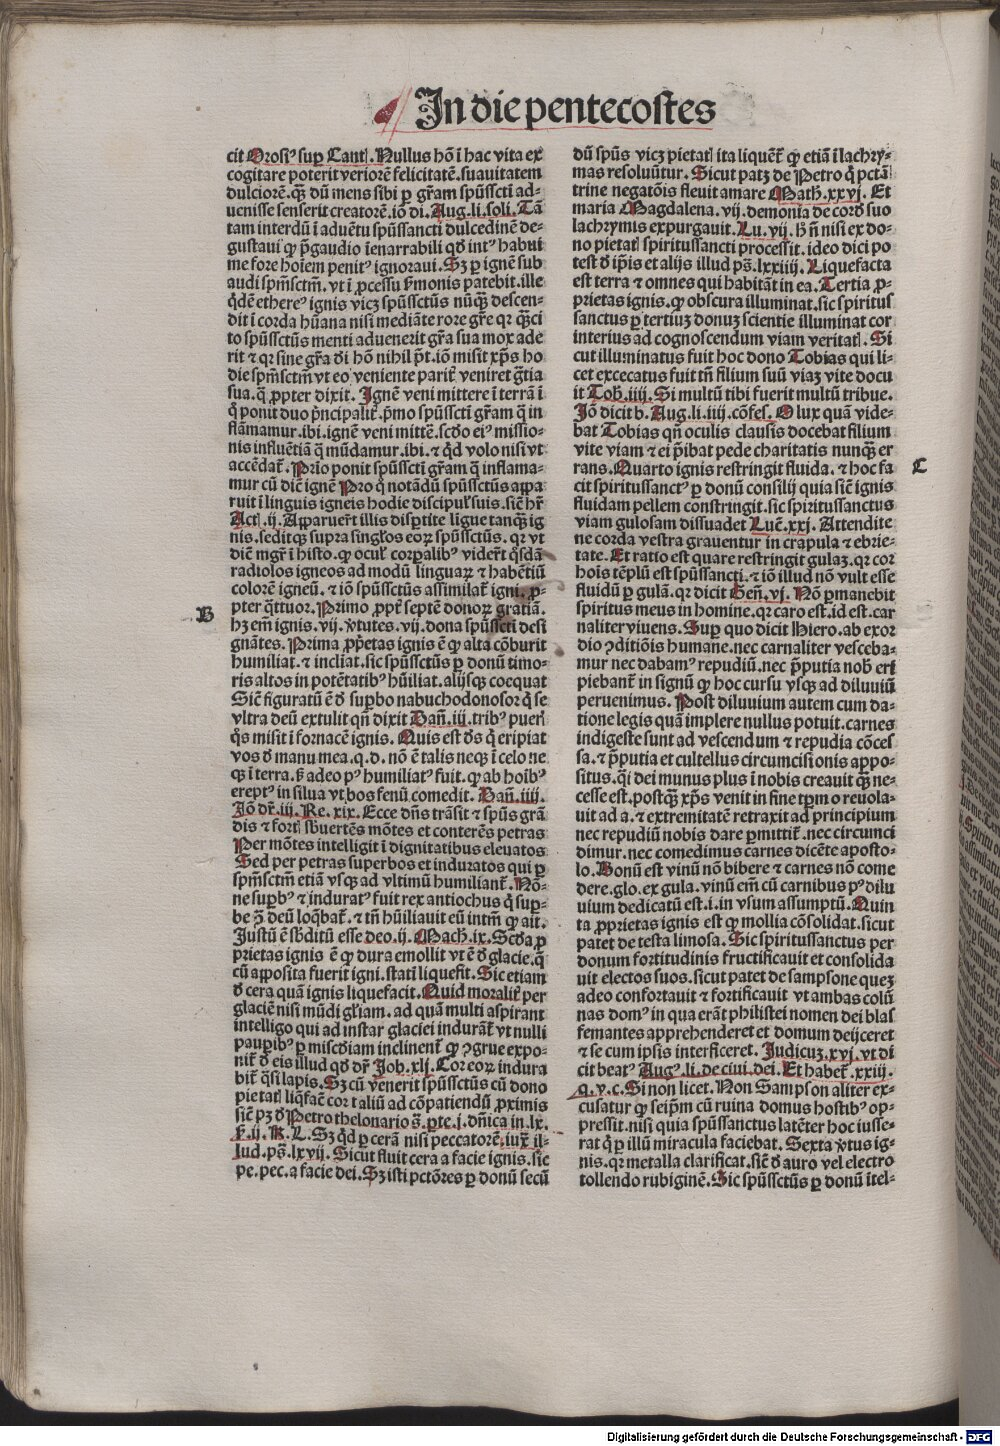 In die pentecostes
cit Orosiꝰ sup Cantꝭ. Nullus hō ī hac vita ex
cogitare poterit veriorē felicitatē. suauitatem
dulciorē. q̄ȝ dū mens sibi ꝑ gr̄am spūssctī ad-
uenisse senserit creatorē. iō di. Aug. li. soli. Tā
tam interdū ī aduētu spūssancti dulcedinē de-
gustaui ꝙ p̄gaudio īenarrabili qd̄ intꝰ habui
me fore hoīem penitꝰ ignoraui. Sȝ ꝑ ignē sub
audi spm̄sctm̄. vt ī ꝓcessu ẜmonis patebit. ille
q̄dē ethereꝰ ignis vicȝ spūssctūs nūq̄ȝ descen-
dit ī corda hūana nisi mediāte rore gr̄e qr q̄ȝci
to spūssctūs menti aduenerit gr̄a sua mox ade
rit ⁊ qr sine gr̄a di hō nihil pt̄. iō misit xp̄s ho
die spm̄sctm̄ vt eo veniente parit̄ veniret gr̄tia
sua. q̄ ꝓpter dixit. Ignē veni mittere ī terrā ī
q̄ ponit duo p̄ncipalit̄. p̄mo spūssctī gr̄am q̄ in
flāmamur. ibi. ignē veni mittē. scd̄o eiꝰ missio-
nis influētiā q̄ mūdamur. ibi. ⁊ qd̄ volo nisi vt
accēdat̄. Prio ponit spūssctī gr̄am q̄ inflama-
mur cū diē ignē Pro q̄ notādū spūssctūs appa
ruit ī linguis igneis hodie discipul̓ suis. siē hr̄
Actꝭ. ij. Apparuer̄t illis disptite ligue tanq̄ȝ ig
nis. seditqȝ supra singl̓os eoꝝ spūssctūs. qr vt
diē mgr̄ ī histo. ꝙ ocul̓ corꝑalibꝰ vider̄t q̄sdā
radiolos igneos ad modū linguaꝝ ⁊ habētiū
colorē igneū. ⁊ iō spūssctūs assimilat̄ igni. ꝓ-
pter q̄ttuor. Primo ꝓpt̄ septē donoꝝ gratiā.
B
hȝ em̄ ignis. vij. v̓tutes. vij. dona spūssctī desi
gnātes. Prima ꝓp̓etas ignis ē ꝙ alta cōburit
humiliat. ⁊ incliat. sic spūssctūs ꝑ donū timo-
ris altos in potētatibꝰ hūiliat. alijsqȝ coequat
Siē figuratū ē d̓ supbo nabuchodonosor q̄ se
vltra deū extulit qn̄ dixit Dan̄. iij. tribꝰ puer̓
q̄s misit ī fornacē ignis. Quis est ds̄ q̄ eripiat
vos d̓ manu mea. q. d. nō ē talis neqȝ ī celo ne
qȝ ī terra. ẜ adeo pꝰ humiliatꝰ fuit. ꝙ ab hoībꝰ
ereptꝰ in silua vt bos fenū comedit. Dan̄. iiij.
Iō dr̄. iij. Re. xix. Ecce dn̄s trāsit ⁊ spūs grā
dis ⁊ fortꝭ sb̓uertēs mōtes et conterēs petras
Per mōtes intelligit ī dignitatibus eleuatos
Sed per petras superbos et induratos qui ꝑ
spm̄sctm̄ etiā vsqȝ ad vltimū humiliant̄. Nō-
ne supbꝰ ⁊ induratꝰ fuit rex antiochus q̄ sup-
be ꝯ̄ deū loq̄bat̄. ⁊ tn̄ hūiliauit eū intm̄ ꝙ ait.
Justū ē sb̓ditū esse deo. ij. Mach. ix. Scd̓a ꝓ
prietas ignis ē ꝙ dura emollit vt ē d̓ glacie. q̄
cū apposita fuerit igni. statī liquefit. Sic etiam
d̓ cera quā ignis liquefacit. Quid moralit̄ per
glaciē nisi mūdi gl̓iam. ad quā multi aspirant
intelligo qui ad instar glaciei indurāt̄ vt nulli
pauꝑibꝰ ꝑ misc̓diam inclinent̄ ꝙ ꝯgrue expo-
nit̄ d̓ eis illud qd̓ dr̄ Job. xlj. Cor eoꝝ indura
bit̄ q̄si lapis. Sȝ cū venerit spūssctūs cū dono
pietatꝭ liq̄faē cor taliū ad cōpatiendū ꝓximis
siē pȝ d̓ Petro thelonario s̄. pte. j. dn̄ica in. lx.
ẜ. ij. K. L. Sȝ q̄d ꝑ cerā nisi peccatorē. iux̄ il-
lud. ps̄. lxvij. Sicut fluit cera a facie ignis. sic
pe. pec. a facie dei. Sȝ isti pctōres ꝑ donū secū
dū spūs vicȝ pietatꝭ ita liquēt̄ ꝙ etiā ī lachry-
mas resoluūtur. Sicut patȝ de Petro q̄ pctā
trine negatōis fleuit amare Math. xxvj. Et
maria Magdalena. vij. demonia de cord̓ suo
lachrymis expurgauit. Lu. vij. h̓ n̄ nisi ex do-
no pietatꝭ spiritussancti processit. ideo dici po
test d̓ ip̄is et alijs illud ps̄. lxxiiij. Liquefacta
est terra ⁊ omnes qui habitāt in ea. Tertia ꝓ-
prietas ignis. ꝙ obscura illuminat. sic spiritus
sanctus ꝑ tertiuȝ donuȝ scientie illuminat cor
interius ad cognoscendum viam veritatꝭ. Si
cut illuminatus fuit hoc dono Tobias qui li-
cet excecatus fuit tn̄ filium suū viaȝ vite docu
it Tob. iiij. Si multū tibi fuerit multū tribue.
Jō dicit b. Aug. li. iiij. cōfes. O lux quā vide-
bat Tobias qn̄ oculis clausis docebat filium
vite viam ⁊ ei p̄ibat pede charitatis nunq̄ȝ er
rans. Quarto ignis restringit fluida. ⁊ hoc fa
C
cit spiritussanctꝰ ꝑ donū consilij quia siē ignis
fluidam pellem constringit. sic spiritussanctus
viam gulosam dissuadet Luē. xxj. Attendite
ne corda vestra grauentur in crapula ⁊ ebrie-
tate. Et ratio est quare restringit gulaȝ. qr cor
hois tēplū est spūssancti. ⁊ iō illud nō vult esse
fluidū ꝑ gulā. qr dicit Gen̄. vj. Nō ꝑmanebit
spiritus meus in homine. qr caro est. id est. car
naliter viuens. Sup quo dicit Hiero. ab exor
dio ꝯditiōis humane. nec carnaliter vesceba-
mur nec dabamꝰ repudiū. nec p̄putia nob̓ eri
piebant̄ in signū ꝙ hoc cursu vsqȝ ad diluuiū
peruenimus. Post diluuium autem cum da-
tione legis quā implere nullus potuit. carnes
indigeste sunt ad vescendum ⁊ repudia cōces
sa. ⁊ p̄putia et cultellus circumcisionis appo-
situs. q̄i dei munus plus ī nobis creauit q̄ȝ ne-
cesse est. postq̄ȝ xp̄s venit in fine tpm̄ o reuola-
uit ad a. ⁊ extremitatē retraxit ad principium
nec repudiū nobis dare ꝑmittit̄. nec circunci
dimur. nec comedimus carnes dicēte aposto-
lo. Bonū est vinū nō bibere ⁊ carnes nō come
dere. glo. ex gula. vinū em̄ cū carnibus pꝰ dilu
uium dedicatū est. i. in vsum assumptū. Quin
ta ꝓprietas ignis est ꝙ mollia cōsolidat. sicut
patet de testa limosa. Sic spiritussanctus per
donum fortitudinis fructificauit et consolida
uit electos suos. sicut patet de sampsone queȝ
adeo confortauit ⁊ fortificauit vt ambas colū
nas domꝰ in qua erāt philistei nomen dei blas
femantes apprehenderet et domum deijceret
⁊ se cum ipsis interficeret. Judicuȝ. xvj. vt di
cit beatꝰ Augꝰ. li. de ciui. dei. Et habet̄. xxiij.
q. v. c. Si non licet. Non Sampson aliter ex-
cusatur ꝙ seip̄m cū ruina domus hostibꝰ op-
pressit. nisi quia spūssanctus latēter hoc iusse-
rat q̄ ꝑ illū miracula faciebat. Sexta v̓tus ig-
nis. qr metalla clarificat. siē d̓ auro vel electro
tollendo rubiginē. Sic spūssctūs ꝑ donū ītel-
Digitalisierung gefördert durch die Deutsche Forschungsgemeinschaft - DFG